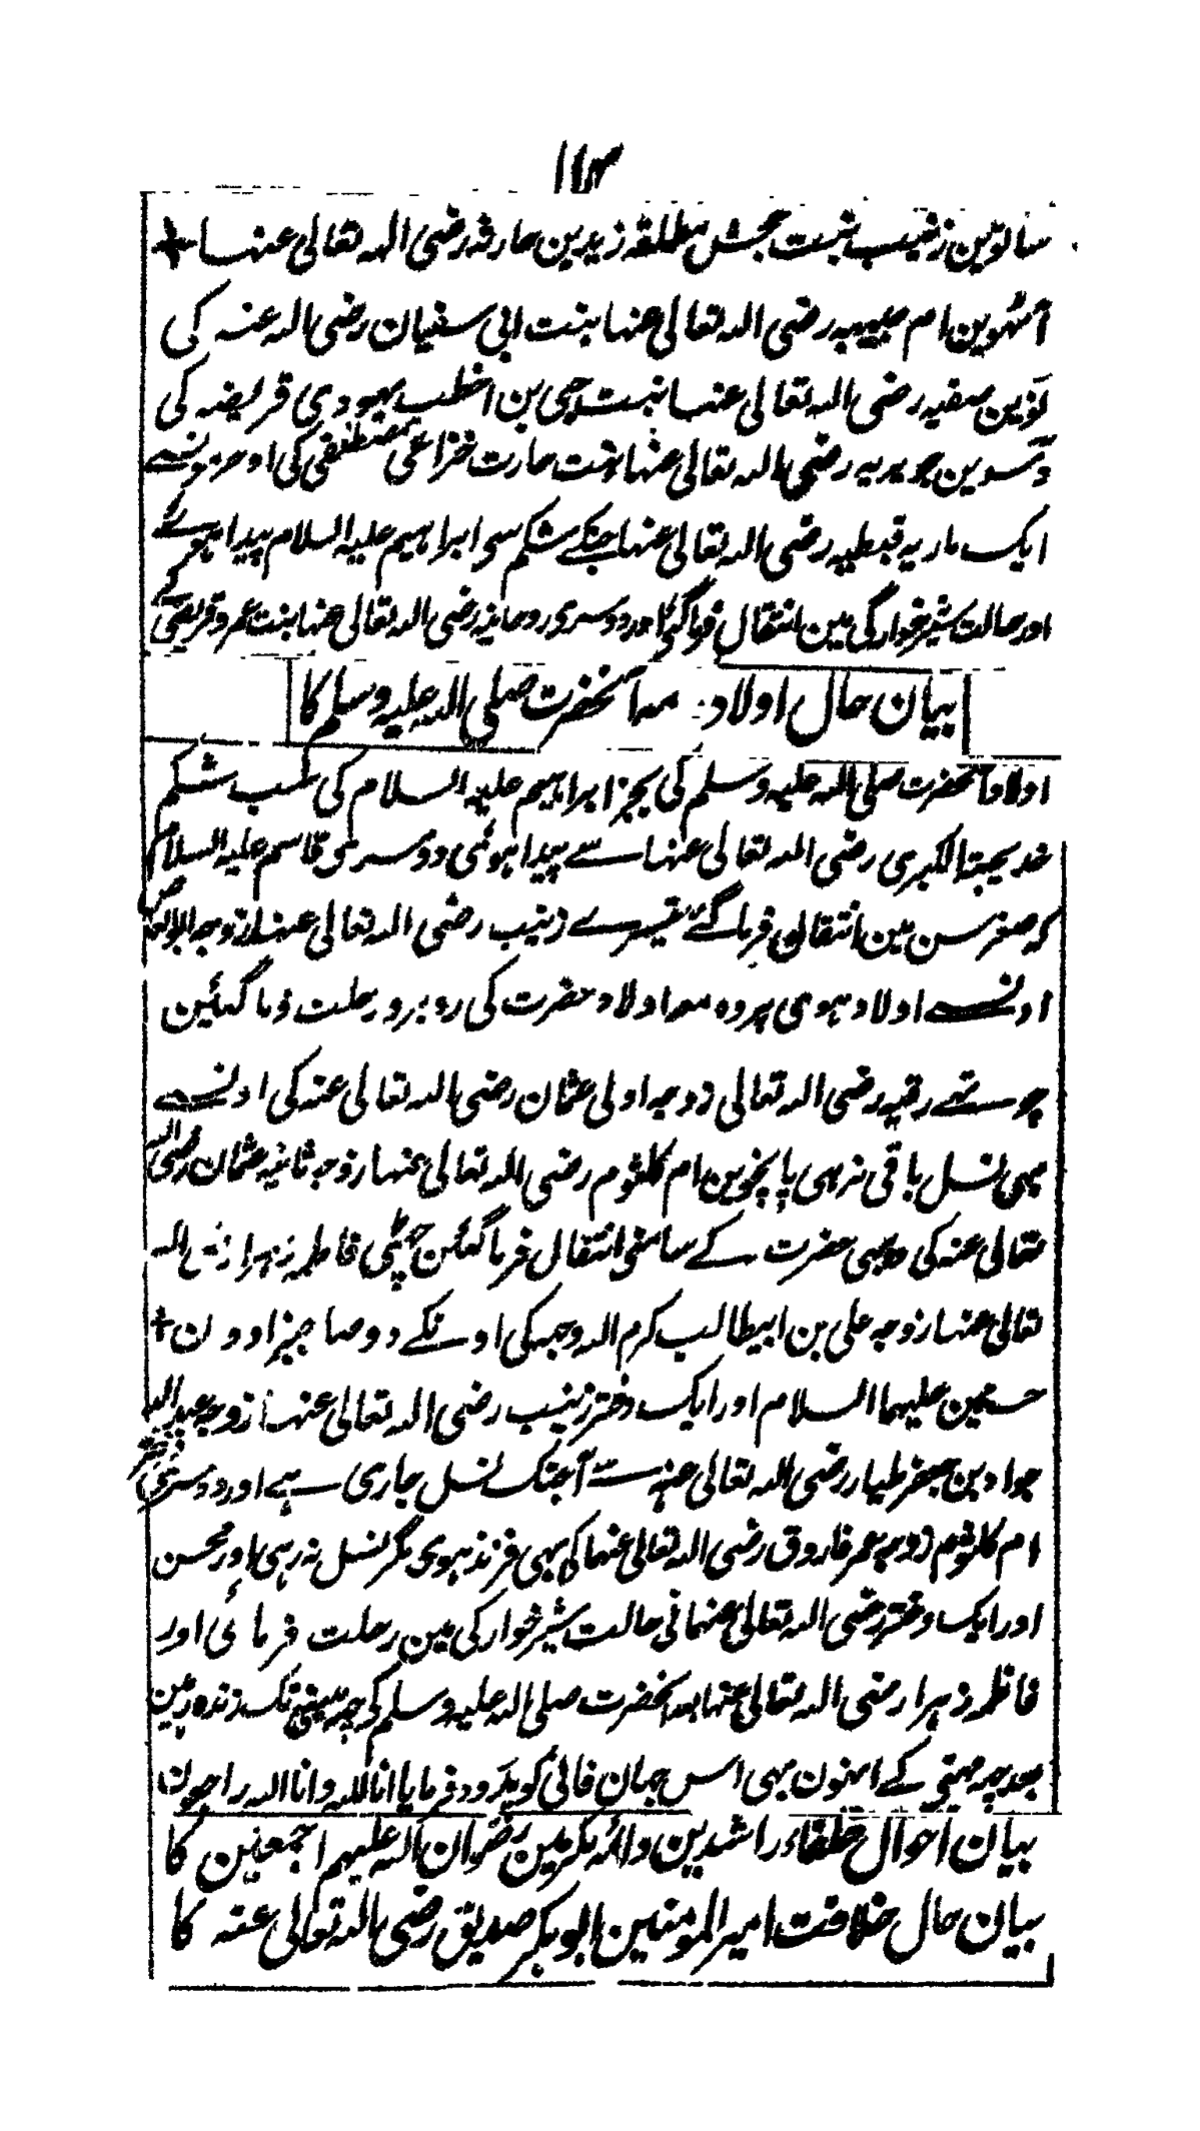 ساتوین زینب بنت جحش مطلقہ زید بن حارثہ رضی اللہ تعالی عنہا
آٹہوین ام حبیبہ رضی اللہ تعالی عنہا بنت ابی سفیان رضی اللہ عنہ کی
نوین صفیہ رضی اللہ تعالی عنہا بنت حیی بن اخطب یہودی قریضہ کی
دسوین جویریہ رضی اللہ تعالی عنہا بنت حارث خزاعی مصطلقی کی اور
ایک ماریہ قبطیہ رضی اللہ تعالی عنہا جنکے شکم سو ابراہیم علیہ السلام پیدا ہوکر
اور حالت شیرخوارگی مین انتقال فرما گئے اور دوسری روحانہ رضی اللہ تعالی عنہا بنت عمرو قریضی کے
بیان حال اولاد آنحضرت صلی اللہ علیہ وسلم کا
اولاد آنحضرت صلی اللہ علیہ وسلم کی بجز ابراہیم علیہ السلام کی سب شکم
خدیجۃ الکبری رضی اللہ تعالی عنہا سے پیدا ہوئی دوسری قاسم علیہ السلام
کہ صغر سن مین انتقال فرما گئے تیسرے زینب رضی اللہ تعالی عنہا زوجہ ابوالعاص
اونسے اولاد ہوی پر وہ معہ اولاد حضرت کی روبرو رحلت فرما گئین
چوتھے رقیہ رضی اللہ تعالی زوجہ اولی عثمان رضی اللہ تعالی عنہ کی اونسے
بہی نسل باقی نرہی پانچوین ام کلثوم رضی اللہ تعالی عنہا زوجہ ثانیہ عثمان رضی اللہ
تعالی عنہ کی وہ بہی حضرت کے سامنی انتقال فرما گئین چہٹی فاطمہ زہرا رضی اللہ
تعالی عنہا زوجہ علی بن ابیطالب کرم اللہ وجہہ کی اونکے دو صاحبزادون
حسنین علیہما السلام اور ایک دختر زینب رضی اللہ تعالی عنہا زوجہ عبد اللہ
جواد بن جعفر طیار رضی اللہ تعالی عنہ سے آجتک نسل جاری ہے اور دوسری دختر
ام کلثوم زوجہ عمر فاروق رضی اللہ تعالی عنہما کی بہی فرزند ہوی مگر نسل نہ رہی اور محسن
اور ایک دختر رضی اللہ تعالی عنہما نی حالت شیرخوارکی مین رحلت فرمائی اور
فاطمہ زہرا رضی اللہ تعالی عنہا بعد آنحضرت صلی اللہ علیہ وسلم کی چہہ مہینے تک زندہ رہین
بعد چہہ مہنی کے انہون بہی اس جہان فانی کو پدرود فرمایا انا للہ وانا الیہ راجعون
بیان احوال خلفاء راشدین وائمہ مکرمین رضوان اللہ علیہم اجمعین کا
بیان حال خلافت امیر المومنین ابوبکر صدیق رضی اللہ تعالی عنہ کا